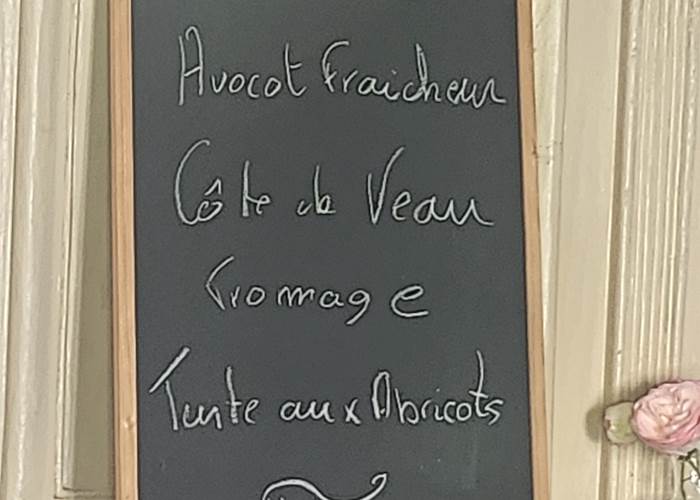 Avocot Fraicheur
Côte de Veau
Fromage
Tarte aux Abricots